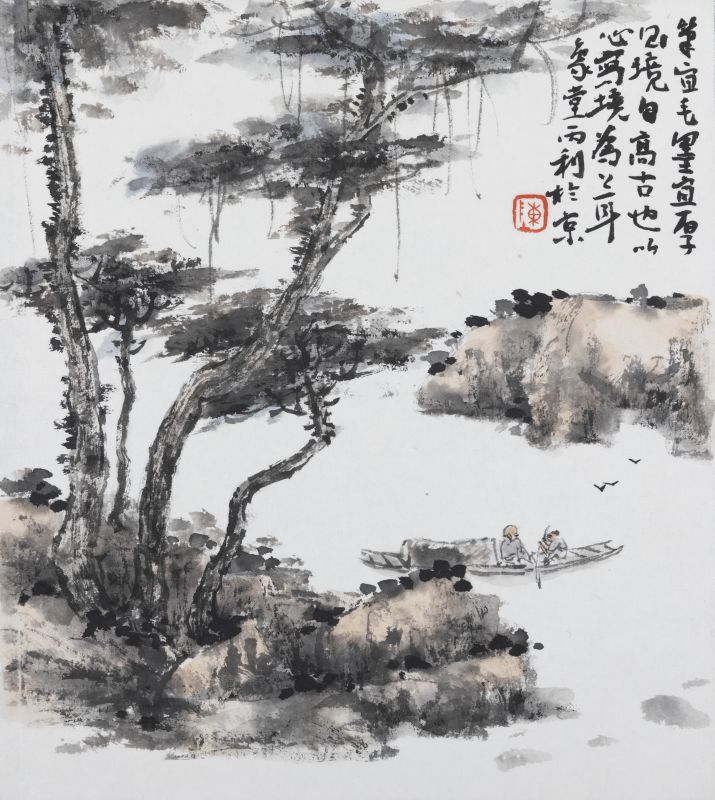 筆宜毛墨宜厚
境自高古也以
心寫境為上耳
象堂丙利於京
陳